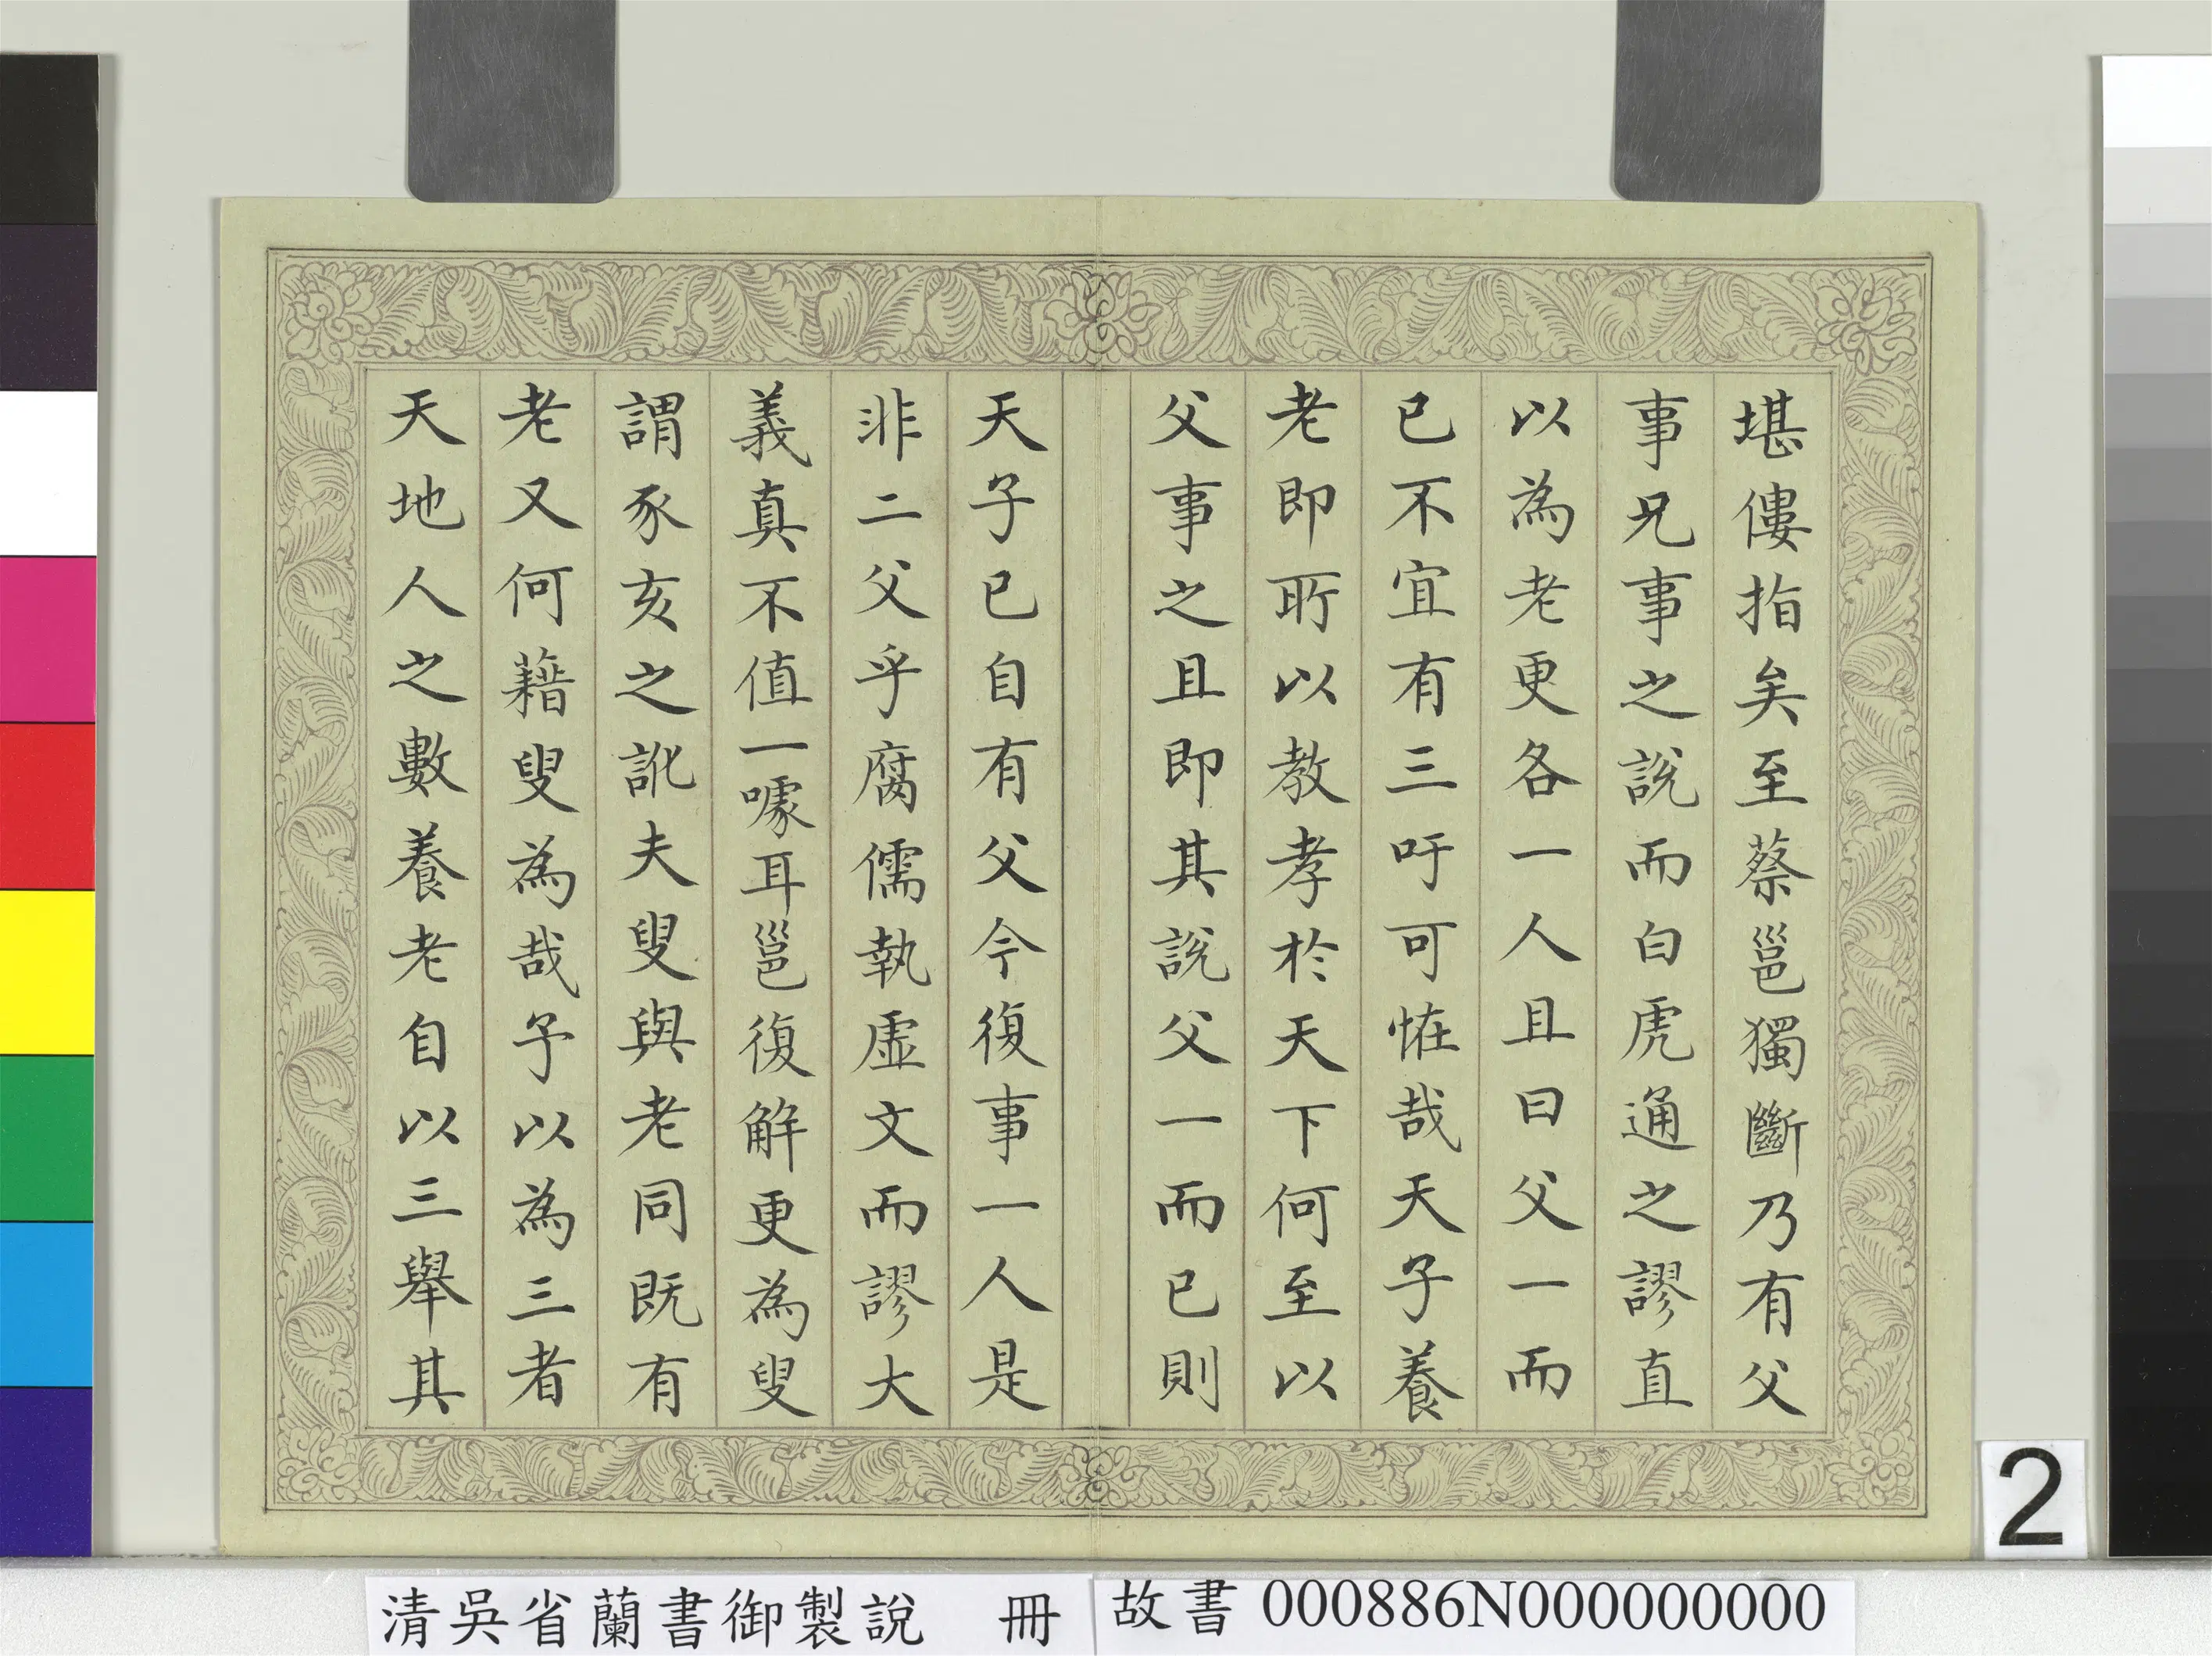 堪僂指矣至蔡邕獨斷乃有父
事兄事之說而白虎通之謬直
以為老更各一人且曰父一而
已不宜有三吁可恠哉天子養
老即所以教孝於天下何至以
父事之且即其說父一而已則
天子已自有父今復事一人是
非二父乎腐儒執虛文而謬大
義真不值一噱耳邕復解更為叟
謂豕亥之訛夫叟與老同既有
老又何藉叟為哉予以為三者
天地人之數養老自以三舉其
2
清吳省蘭書御製說 冊
故書 000886N000000000